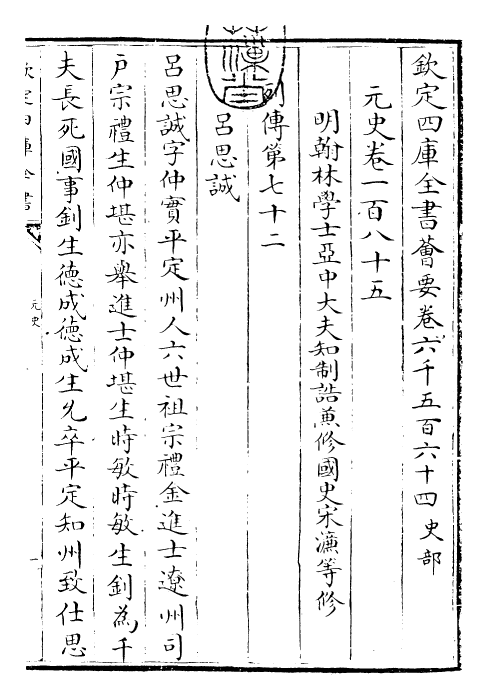 欽定四庫全書薈要卷六千五百六十四史部
元史卷一百八十五
明翰林學士亞中大夫知制誥兼修國史宋濂等修
列傳第七十二
吕思誠
吕思誠字仲實平定州人六世祖宗禮金進士遼州司
户宗禮生仲堪亦舉進士仲堪生時敏時敏生釗為千
夫長死國事釗生徳成徳成生允卒平定知州致仕思
欽定四庫全書
元史
一